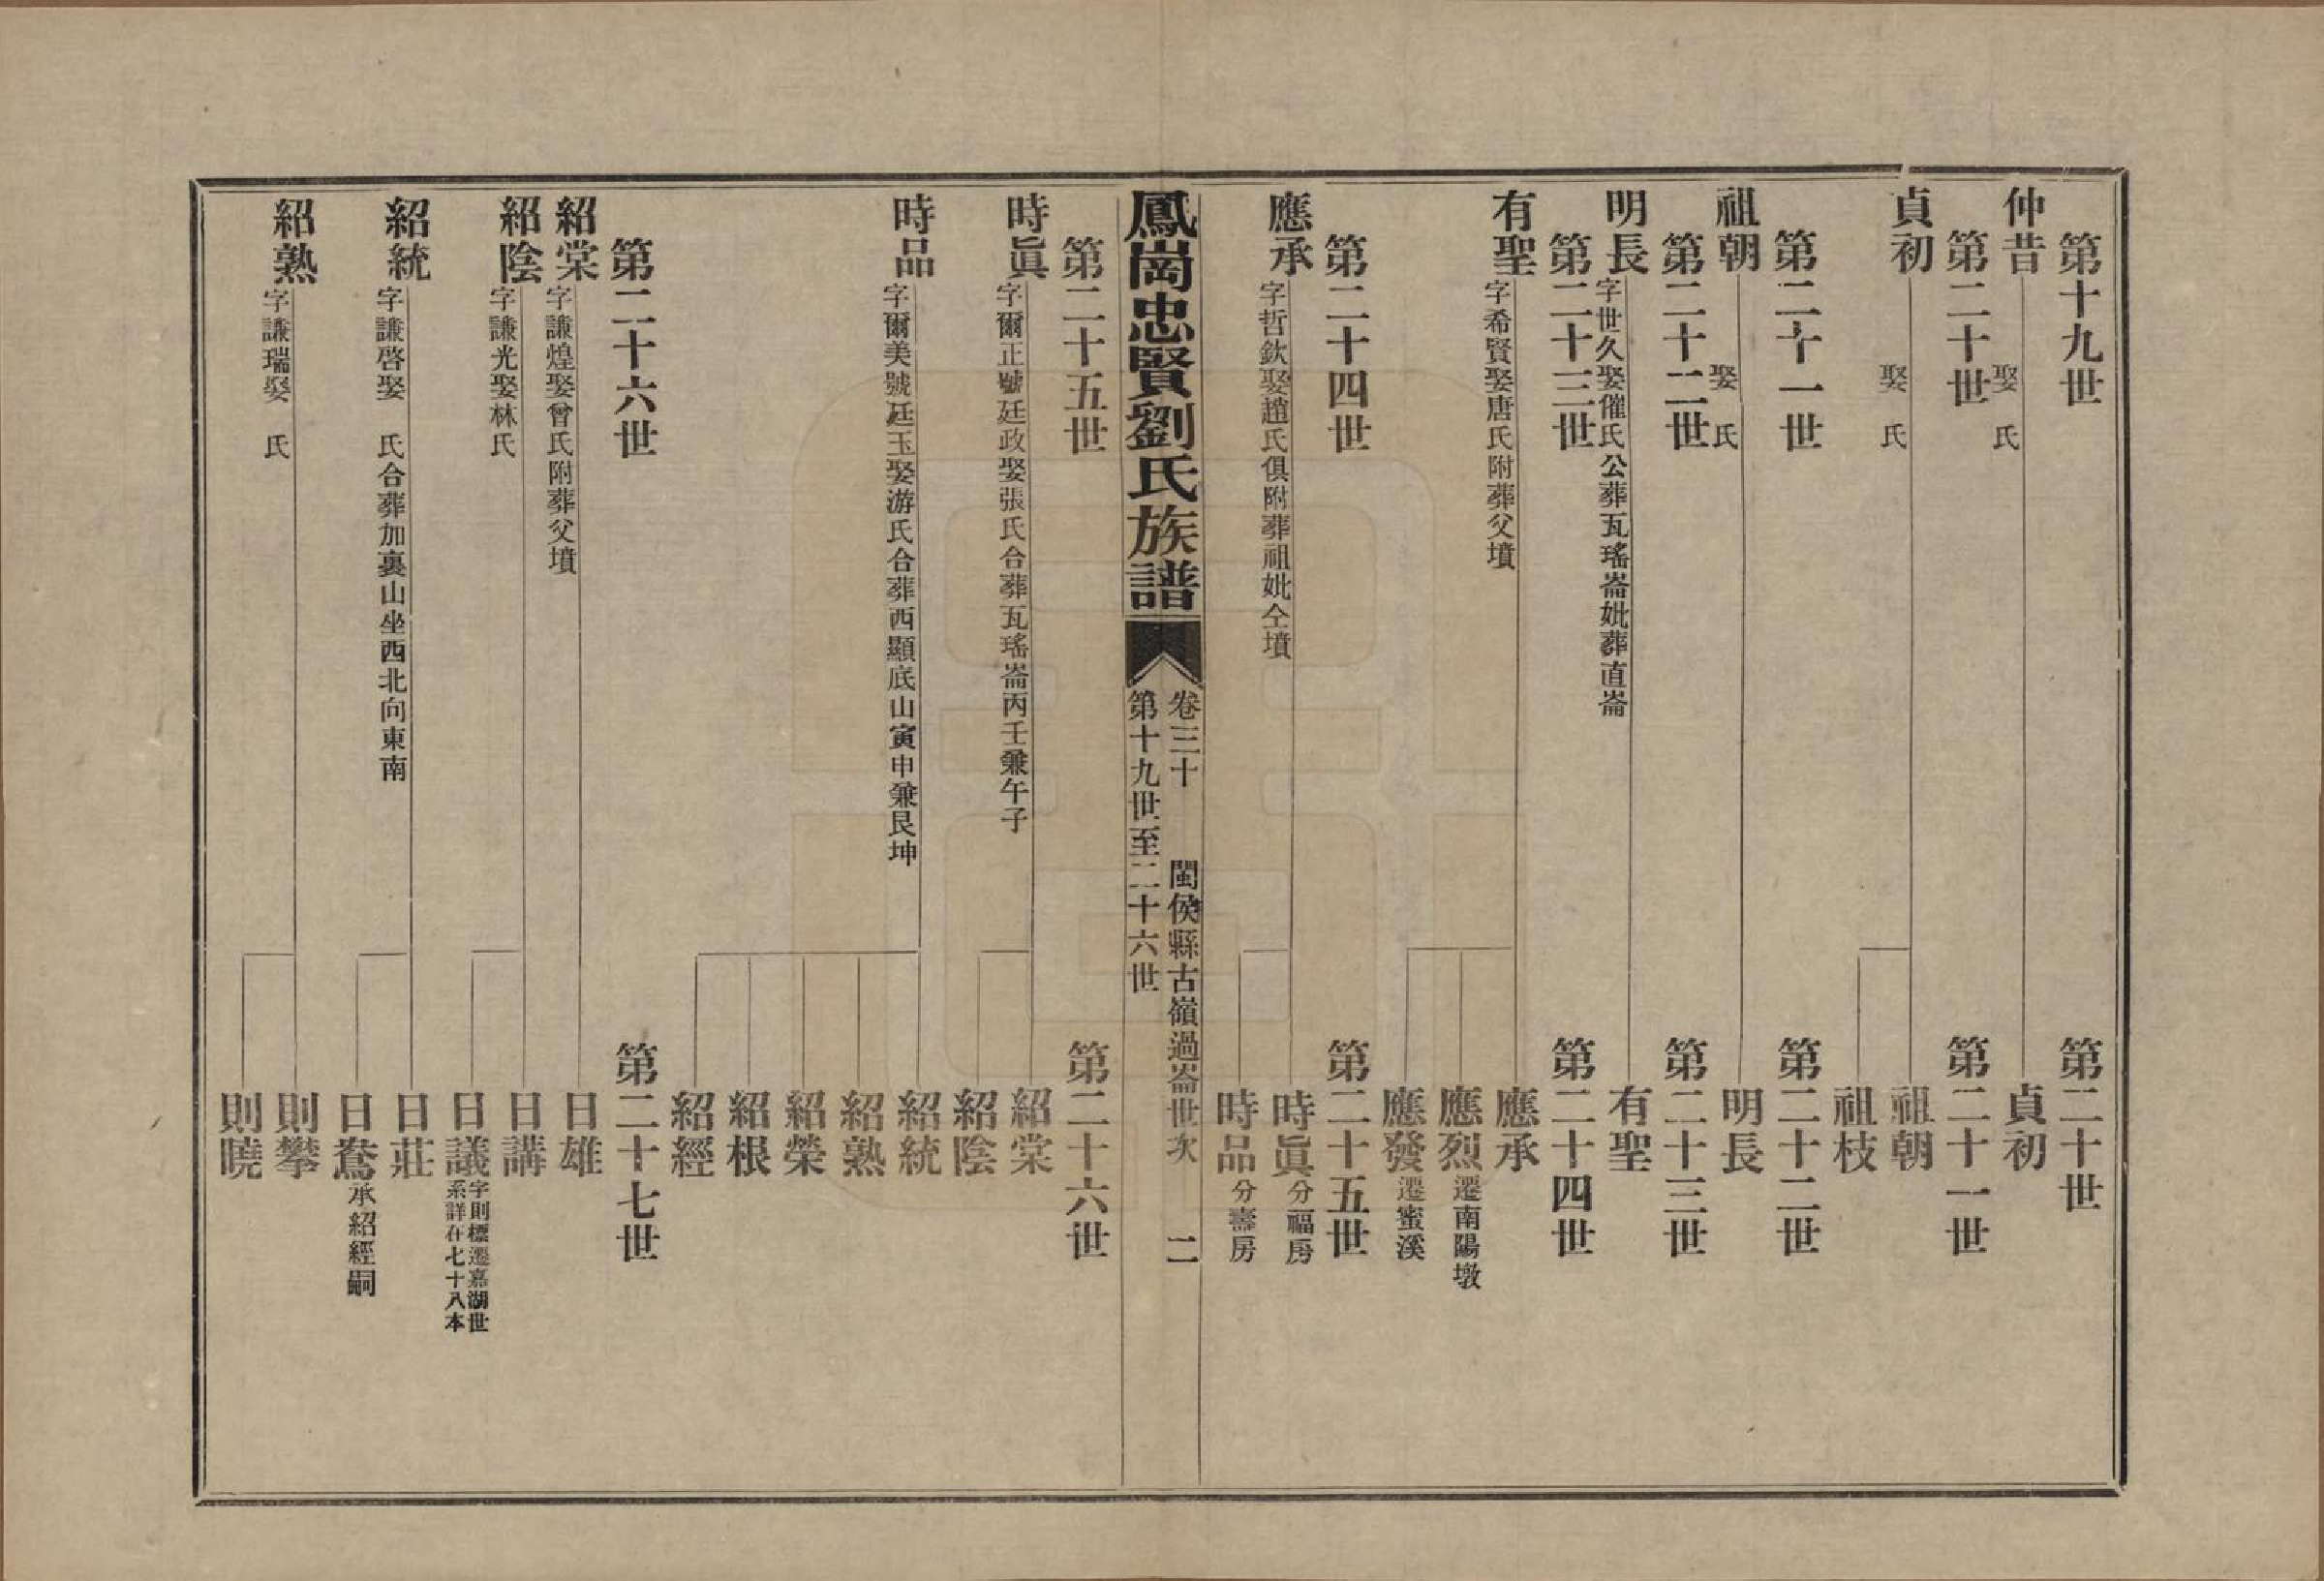 第十九世　第二十世
仲昔　娶　氏　貞初
第二十世　第二十一世
貞初　娶　氏　祖朝
祖枝
第二十一世　第二十二世
祖朝　娶　氏　明長
第二十二世　第二十三世
明長　字世久娶催氏公葬瓦瑤崙妣葬直崙　有聖
第二十三世　第二十四世
有聖　字希賢娶唐氏附葬父墳　應承
應烈　遷南陽墩
應發　遷蜜溪
第二十四世　第二十五世
應承　字哲欽娶趙氏俱附葬祖妣仝墳　時眞　分福房
時品　分壽房
鳳崗忠賢劉氏族譜
卷三十　閩侯縣古嶺過崙世次　二
第十九世至二十六世
第二十五世　第二十六世
時眞　字爾正號廷政娶張氏合葬瓦瑤崙丙壬兼午子　紹棠
紹陰
時品　字爾美號廷玉娶游氏合葬西顯底山寅申兼艮坤　紹統
紹熟
紹榮
紹根
紹經
第二十六世　第二十七世
紹棠　字謙煌娶曾氏附葬父墳　日雄
紹陰　字謙光娶林氏　日講
日議　字則標遷嘉湖世系詳在七十八本
紹統　字謙啓娶　氏合葬加裏山坐西北向東南　日莊
日鴦　承紹經嗣
紹熟　字謙瑞娶　氏　則攀
則曉